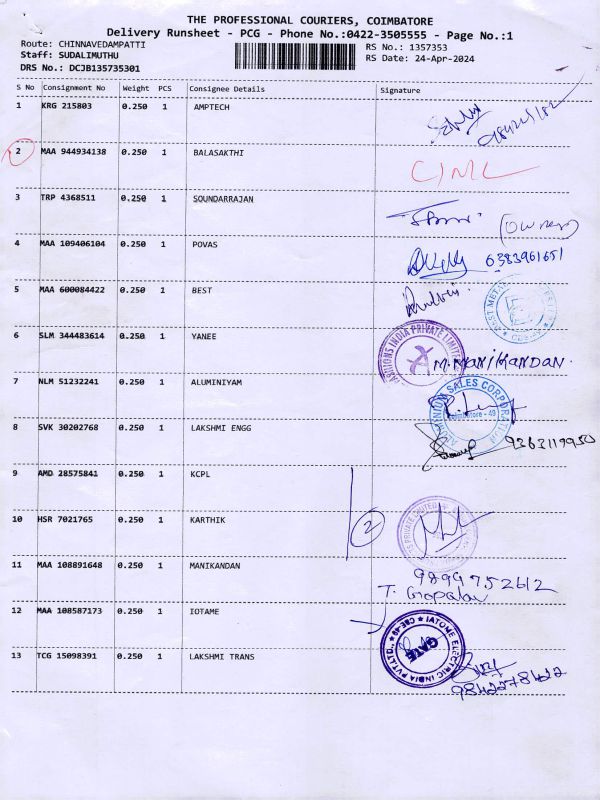 THE PROFESSIONAL COURIERS, COIMBATORE
Delivery Runsheet - PCG - Phone No.:0422-3505555 - Page No.:1
Route: CHINNAVEDAMPATTI
RS No.: 1357353
Staff: SUDALIMUTHU
RS Date: 24-Apr-2024
DRS No.: DCJB135735301
S No Consignment No Weight PCS Consignee Details Signature
1 KRG 215803 0.250 1 AMPTECH
2 MAA 944934138 0.250 1 BALASAKTHI
3 TRP 4368511 0.250 1 SOUNDARRAJAN
(owner)
4 MAA 109406104 0.250 1 POVAS
6383961651
5 MAA 600084422 0.250 1 BEST
6 SLM 344483614 0.250 1 YANEE
INDIA PRIVATE LIMITED
M.MANIKANDAN.
7 NLM 51232241 0.250 1 ALUMINIYAM
ALUMINIUM SALES CORPORATION
8 SVK 30202768 0.250 1 LAKSHMI ENGG
9363119950
9 AMD 28575841 0.250 1 KCPL
10 HSR 7021765 0.250 1 KARTHIK
2
11 MAA 108891648 0.250 1 MANIKANDAN
9899752612
T. Gopalan
12 MAA 108587173 0.250 1 IOTAME
IATOME ELECTRIC INDIA PVT.LTD. CBE-49
GATE
13 TCG 15098391 0.250 1 LAKSHMI TRANS
9842278422